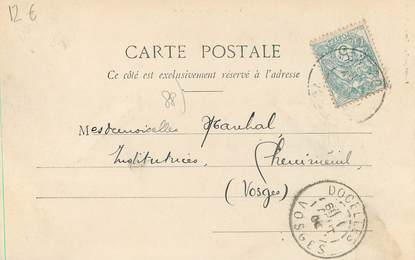 12 €
CARTE POSTALE
Ce côté est exclusivement réservé à l'adresse
88)
Mesdemoiselles
Institutrices,
Cheniménil
(Vosges)
DOCELLES
VOSGES